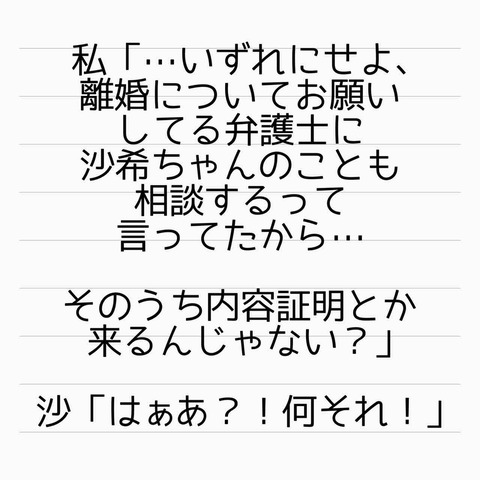 私「…いずれにせよ、
離婚についてお願い
してる弁護士に
沙希ちゃんのことも
相談するって
言ってたから…
そのうち内容証明とか
来るんじゃない？」
沙「はぁあ？！何それ！」